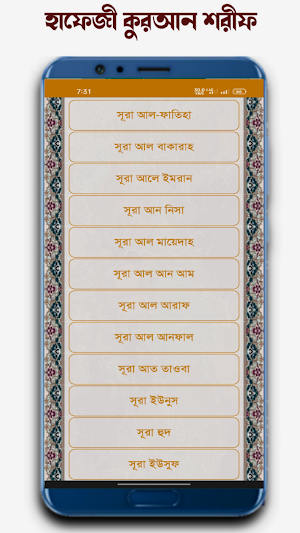 হাফেজী কুরআন শরীফ
7:31
সূরা আল-ফাতিহা
সূরা আল বাকারাহ
সূরা আলে ইমরান
সূরা আন নিসা
সূরা আল মায়েদাহ
সূরা আল আন আম
সূরা আল আরাফ
সূরা আল আনফাল
সূরা আত তাওবা
সূরা ইউনুস
সূরা হুদ
সূরা ইউসুফ